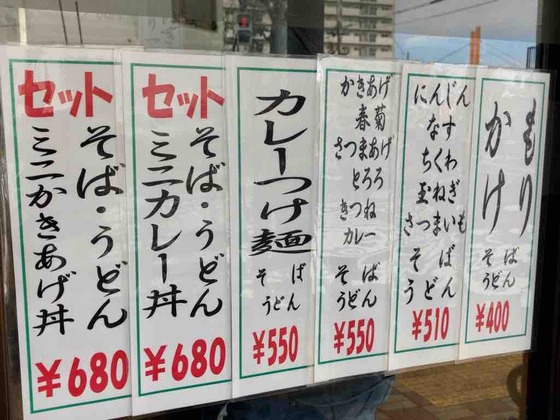 もり
かけ
そば
うどん
¥400
にんじん
なす
ちくわ
玉ねぎ
さつまいも
そば
うどん
¥510
かきあげ
春菊
さつまあげ
とろろ
きつね
カレー
そば
うどん
¥550
カレーつけ麺
そば
うどん
¥550
セット
そば・うどん
ミニカレー丼
¥680
セット
そば・うどん
ミニかきあげ丼
¥680